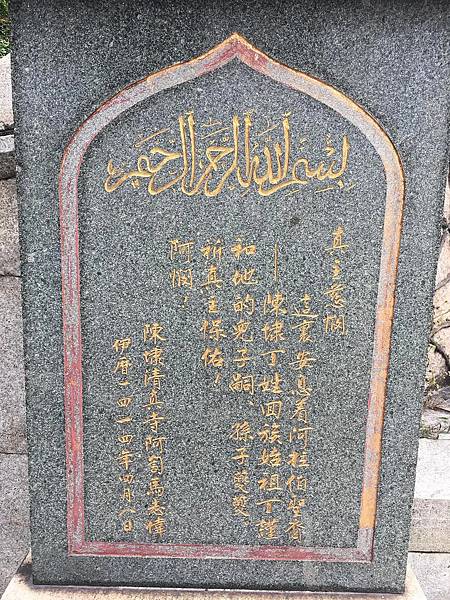 بسم الله الرحمن الرحيم
真主慈悯
這裏安息着阿拉伯聖裔
——陳埭丁姓回族始祖丁謹
和他的兒子嗣 孫子夔。
祈真主保佑！
阿悯！
陳埭清真寺阿訇馬志
伊曆一四一四年四月八日